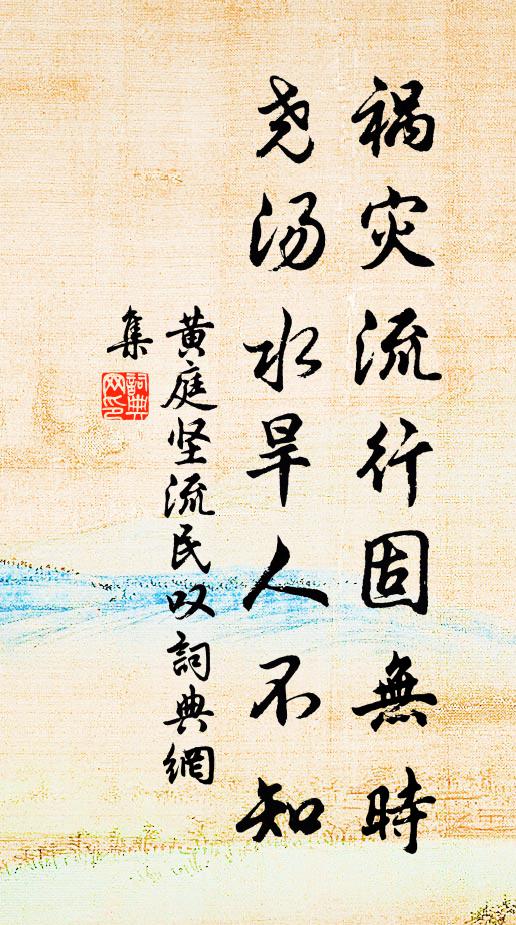 祸灾流行固無時
尧汤水旱人不知
黄庭坚流民叹詞典網
集
詞典
网印